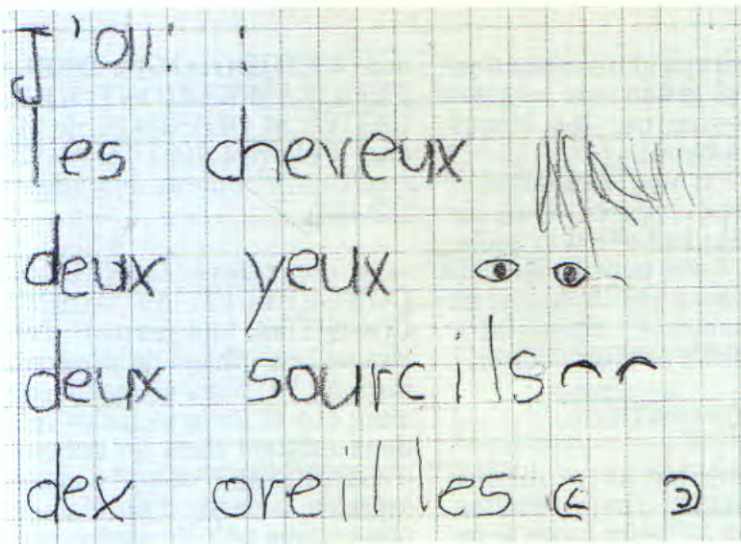 j'ai :
les cheveux
deux yeux
deux sourcils
dex oreilles